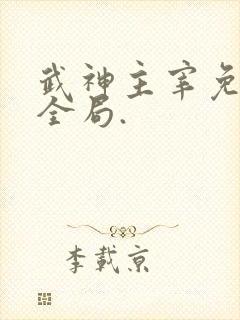 武神主宰免
全局.
李載京